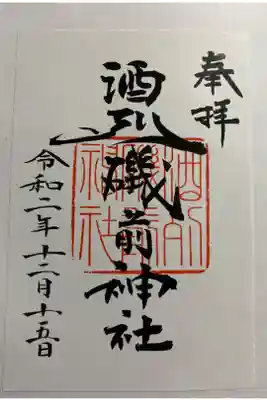 奉拝
酒列磯前神社
酒列
磯前
神社
令和二年十二月十五日